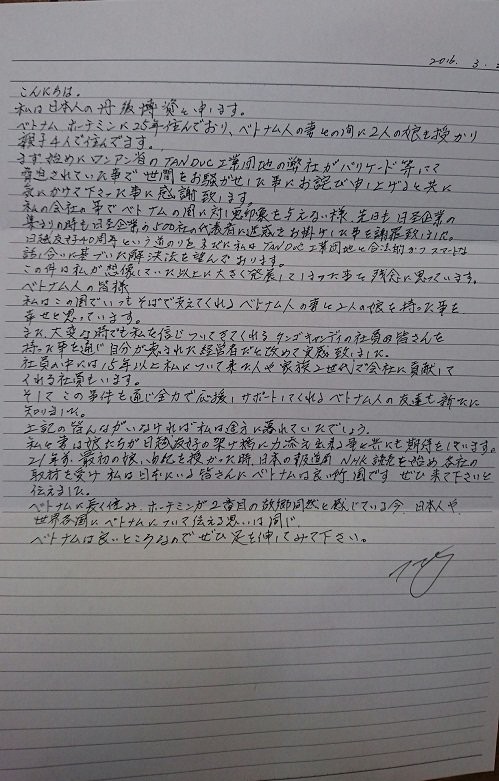 2016. 3.
こんにちは。
私は日本人の丹後博資と申します。
ベトナム ホーチミンに25年住んでおり、ベトナム人の妻との間に2人の娘を授かり
親子4人で住んでます。
まず始めにロンアン省のTAN DUC工業団地の弊社がバリケード等にて
脅迫されていた事で世間をお騒がせした事にお詫び申し上げると共に
気にかけて下さった事に感謝致します。
私の会社の事でベトナムの国に対し悪印象を与えない様、先日も日系企業の
集まりの時も日系企業の 社の代表者に迷惑をお掛けした事を謝罪致しました。
日越友好40周年という道のりを まだに私はTAN DUC工業団地と合法的かつスマートな
話し合いに基づいた解決法を望んでおります。
この件は私が想像していた以上に大きく発展してしまった事を残念に思っています。
ベトナム人の皆様
私はこの国でいつもそばで支えてくれるベトナム人の妻と2人の娘を持った事を
幸せと思っています。
また、大変な時でも私を信じついてきてくれる タンゴキャンディの社員の皆さんを
持った事を通じ自分が恵まれた経営者だと改めて実感致しました。
社員の中には15年以上私について来た人や家族2世代で会社に貢献して
くれる社員もいます。
そして この事件を通じ全力で応援しサポートしてくれるベトナム人の友達も新たに
知りました。
上記の皆んながいなければ私は途方に暮れていたでしょう。
私と妻は娘たちが日越友好の架け橋に力添え出来る事を共にも期待をしています。
21年前、最初の娘、 を授かった時、日本の報道局 NHK 読売を始め各社の
取材を受け 私は日本にいる皆さんにベトナムは良い所です ぜひ来て下さいと
伝えました。
ベトナムに長く住み、ホーチミンが2番目の故郷同然と感じている今、日本人や
世界各国にベトナムについて伝える思いは同じ。
ベトナムは良いところなのでぜひ足を伸してみて下さい。